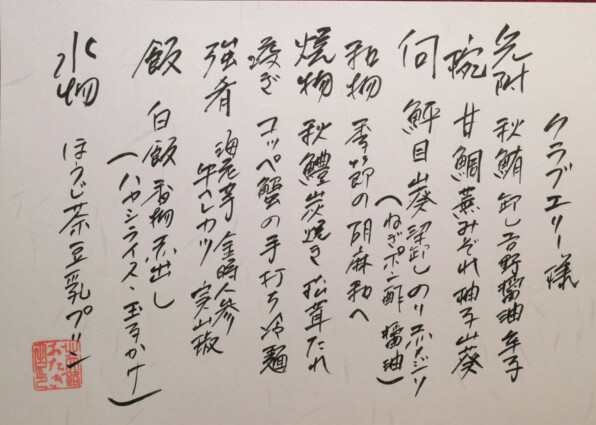 クラブエリー様
先附 秋鮪 卸し 吉野醤油 辛子
椀 甘鯛 蕪みぞれ 柚子 山葵
向 鮃 目 山葵 染卸し のり
(ねぎ ポン酢 醤油)
和物 季節の胡麻和へ
焼物 秋鱧炭焼き 松茸たれ
凌ぎ コッペ蟹の手打ち冷麺
強肴 海老芋 金時人参
牛ヘレカツ 実山椒
飯 白飯 香物 赤出し
(ハヤシライス・玉子かけ)
水物 ほうじ茶豆乳プリン
おたぎ